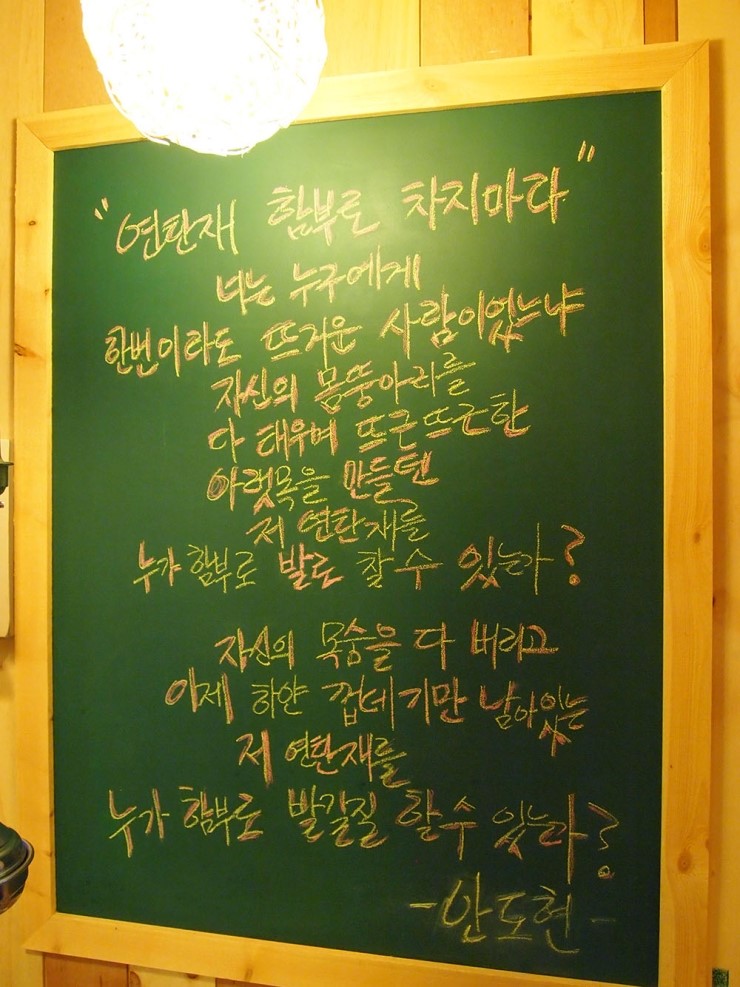 "연탄재 함부로 차지마라"
너는 누구에게
한번이라도 뜨거운 사람이었느냐
자신의 몸뚱아리를
다 태우며 뜨근뜨근한
아랫목을 만들던
저 연탄재를
누가 함부로 발로 찰 수 있는가?
자신의 목숨을 다 버리고
이제 하얀 껍데기만 남아있는
저 연탄재를
누가 함부로 발길질 할 수 있는가?
-안도현-